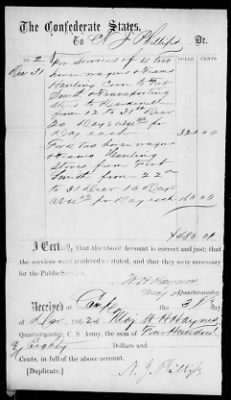 The Confederate States,
To N. J. Phillips Dr.
186 2 DOLLS CENTS
Dec 31 For Services of two
horse wagons & teams
Hauling Corn to Fort
Smith & transporting
Stores to
from 12 to 31st Decr
20 Days
Day each 320 00
For two horse wagons
& teams Hauling
Stores from Fort
Smith from 22nd
to 31 Decr 10 Days
per Day each 160 00
$480 00
I Certify, That the above Account is correct and just; that
the services were rendered as stated, and that they were necessary
for the Public Service.
W. H. Haynes
Maj & Quartermaster
Received at Camp the 31st
of Dec 1862 of Maj W. H. Haynes
Quartermaster, C. S. Army, the sum of Four Hundred
& Eighty Dollars and
Cents, in full of the above account.
[Duplicate.] N. J. Phillips